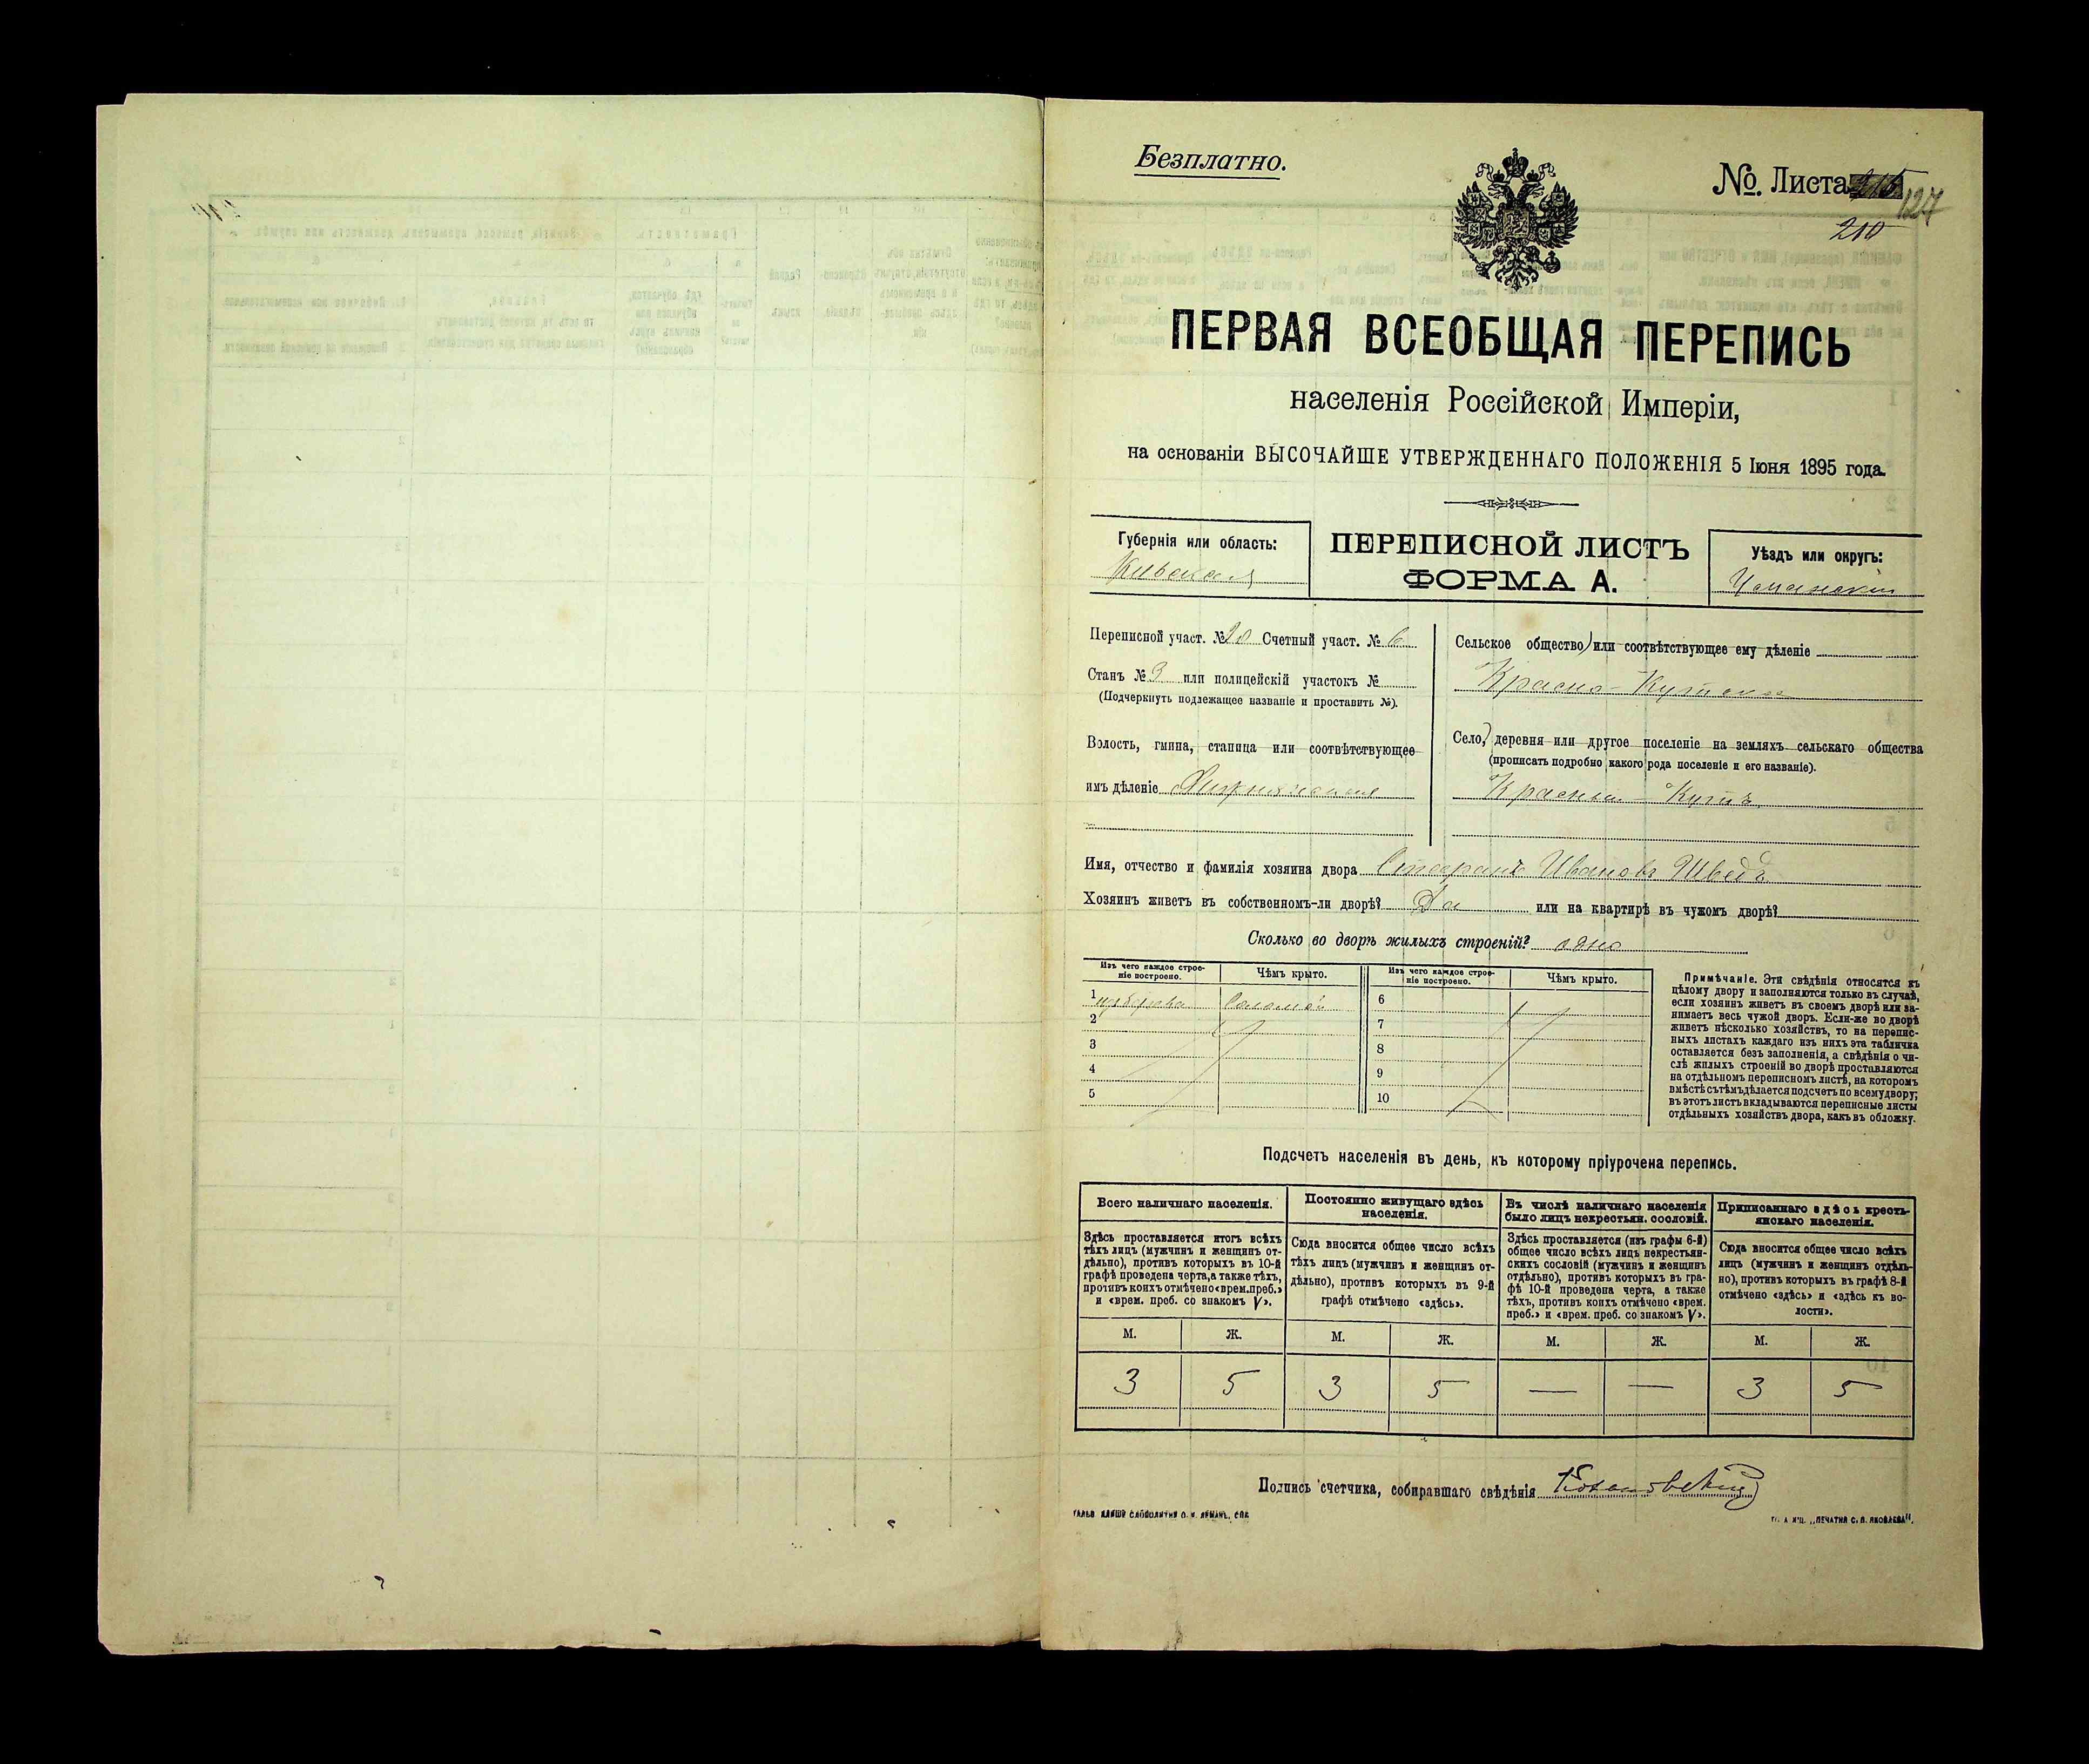 Безплатно.
№ Листа 215
127
210
ПЕРВАЯ ВСЕОБЩАЯ ПЕРЕПИСЬ
населенія Россійской Имперіи,
на основаніи ВЫСОЧАЙШЕ УТВЕРЖДЕННАГО ПОЛОЖЕНІЯ 5 Іюня 1895 года.
Губернія или область:
Кіевская
ПЕРЕПИСНОЙ ЛИСТЪ
ФОРМА А.
Уѣздъ или округъ:
Уманскій
Переписной участ. № 20 Счетный участ. № 6
Станъ № 3 или полицейскій участокъ №
(Подчеркнуть подлежащее названіе и проставить №).
Волость, гмина, станица или соотвѣтствующее
имъ дѣленіе
Сельское общество или соотвѣтствующее ему дѣленіе
Красно-Кутское
Село, деревня или другое поселеніе на земляхъ сельскаго общества
(прописать подробно какого рода поселеніе и его названіе).
Красный Кутъ
Имя, отчество и фамилія хозяина двора Ивановъ Шведъ
Хозяинъ живетъ въ собственномъ-ли дворѣ? Да или на квартирѣ въ чужомъ дворѣ?
Сколько во дворѣ жилыхъ строеній? одно
Изъ чего каждое строе-
ніе построено.
Чѣмъ крыто.
1 Соломой
2
3
4
5
Изъ чего каждое строе-
ніе построено.
Чѣмъ крыто.
6
7
8
9
10
Примѣчаніе. Эти свѣдѣнія относятся къ
цѣлому двору и заполняются только въ случаѣ,
если хозяинъ живетъ въ своемъ дворѣ или за-
нимаетъ весь чужой дворъ. Если-же во дворѣ
живетъ нѣсколько хозяйствъ, то на перепис-
ныхъ листахъ каждаго изъ нихъ эта табличка
оставляется безъ заполненія, а свѣдѣнія о чи-
слѣ жилыхъ строеній во дворѣ проставляются
на отдѣльномъ переписномъ листѣ, на которомъ
вмѣстѣ съ тѣмъ дѣлается подсчетъ по всему двору;
въ этотъ листъ вкладываются переписные листы
отдѣльныхъ хозяйствъ двора, какъ въ обложку.
Подсчетъ населенія въ день, къ которому пріурочена перепись.
Всего наличнаго населенія.
Здѣсь проставляется итогъ всѣхъ
тѣхъ лицъ (мужчинъ и женщинъ от-
дѣльно), противъ которыхъ въ 10-й
графѣ проведена черта, а также тѣхъ,
противъ коихъ отмѣчено «врем. преб.»
и «врем. преб. со знакомъ V».
Постоянно живущаго здѣсь
населенія.
Сюда вносится общее число всѣхъ
тѣхъ лицъ (мужчинъ и женщинъ от-
дѣльно), противъ которыхъ въ 9-й
графѣ отмѣчено «здѣсь».
Въ числѣ наличнаго населенія
было лицъ некрестьян. сословій.
Здѣсь проставляется (изъ графы 6-й)
общее число всѣхъ лицъ некрестьян-
скихъ сословій (мужчинъ и женщинъ
отдѣльно), противъ которыхъ въ гра-
фѣ 10-й проведена черта, а также
тѣхъ, противъ коихъ отмѣчено «врем.
преб.» и «врем. преб. со знакомъ V».
Приписаннаго здѣсь кресть-
янскаго населенія.
Сюда вносится общее число всѣхъ
лицъ (мужчинъ и женщинъ отдѣль-
но), противъ которыхъ въ графѣ 8-й
отмѣчено «здѣсь» и «здѣсь къ во-
лости».
М. Ж. М. Ж. М. Ж. М. Ж.
3 5 3 5 — — 3 5
Подпись счетчика, собиравшаго свѣдѣнія